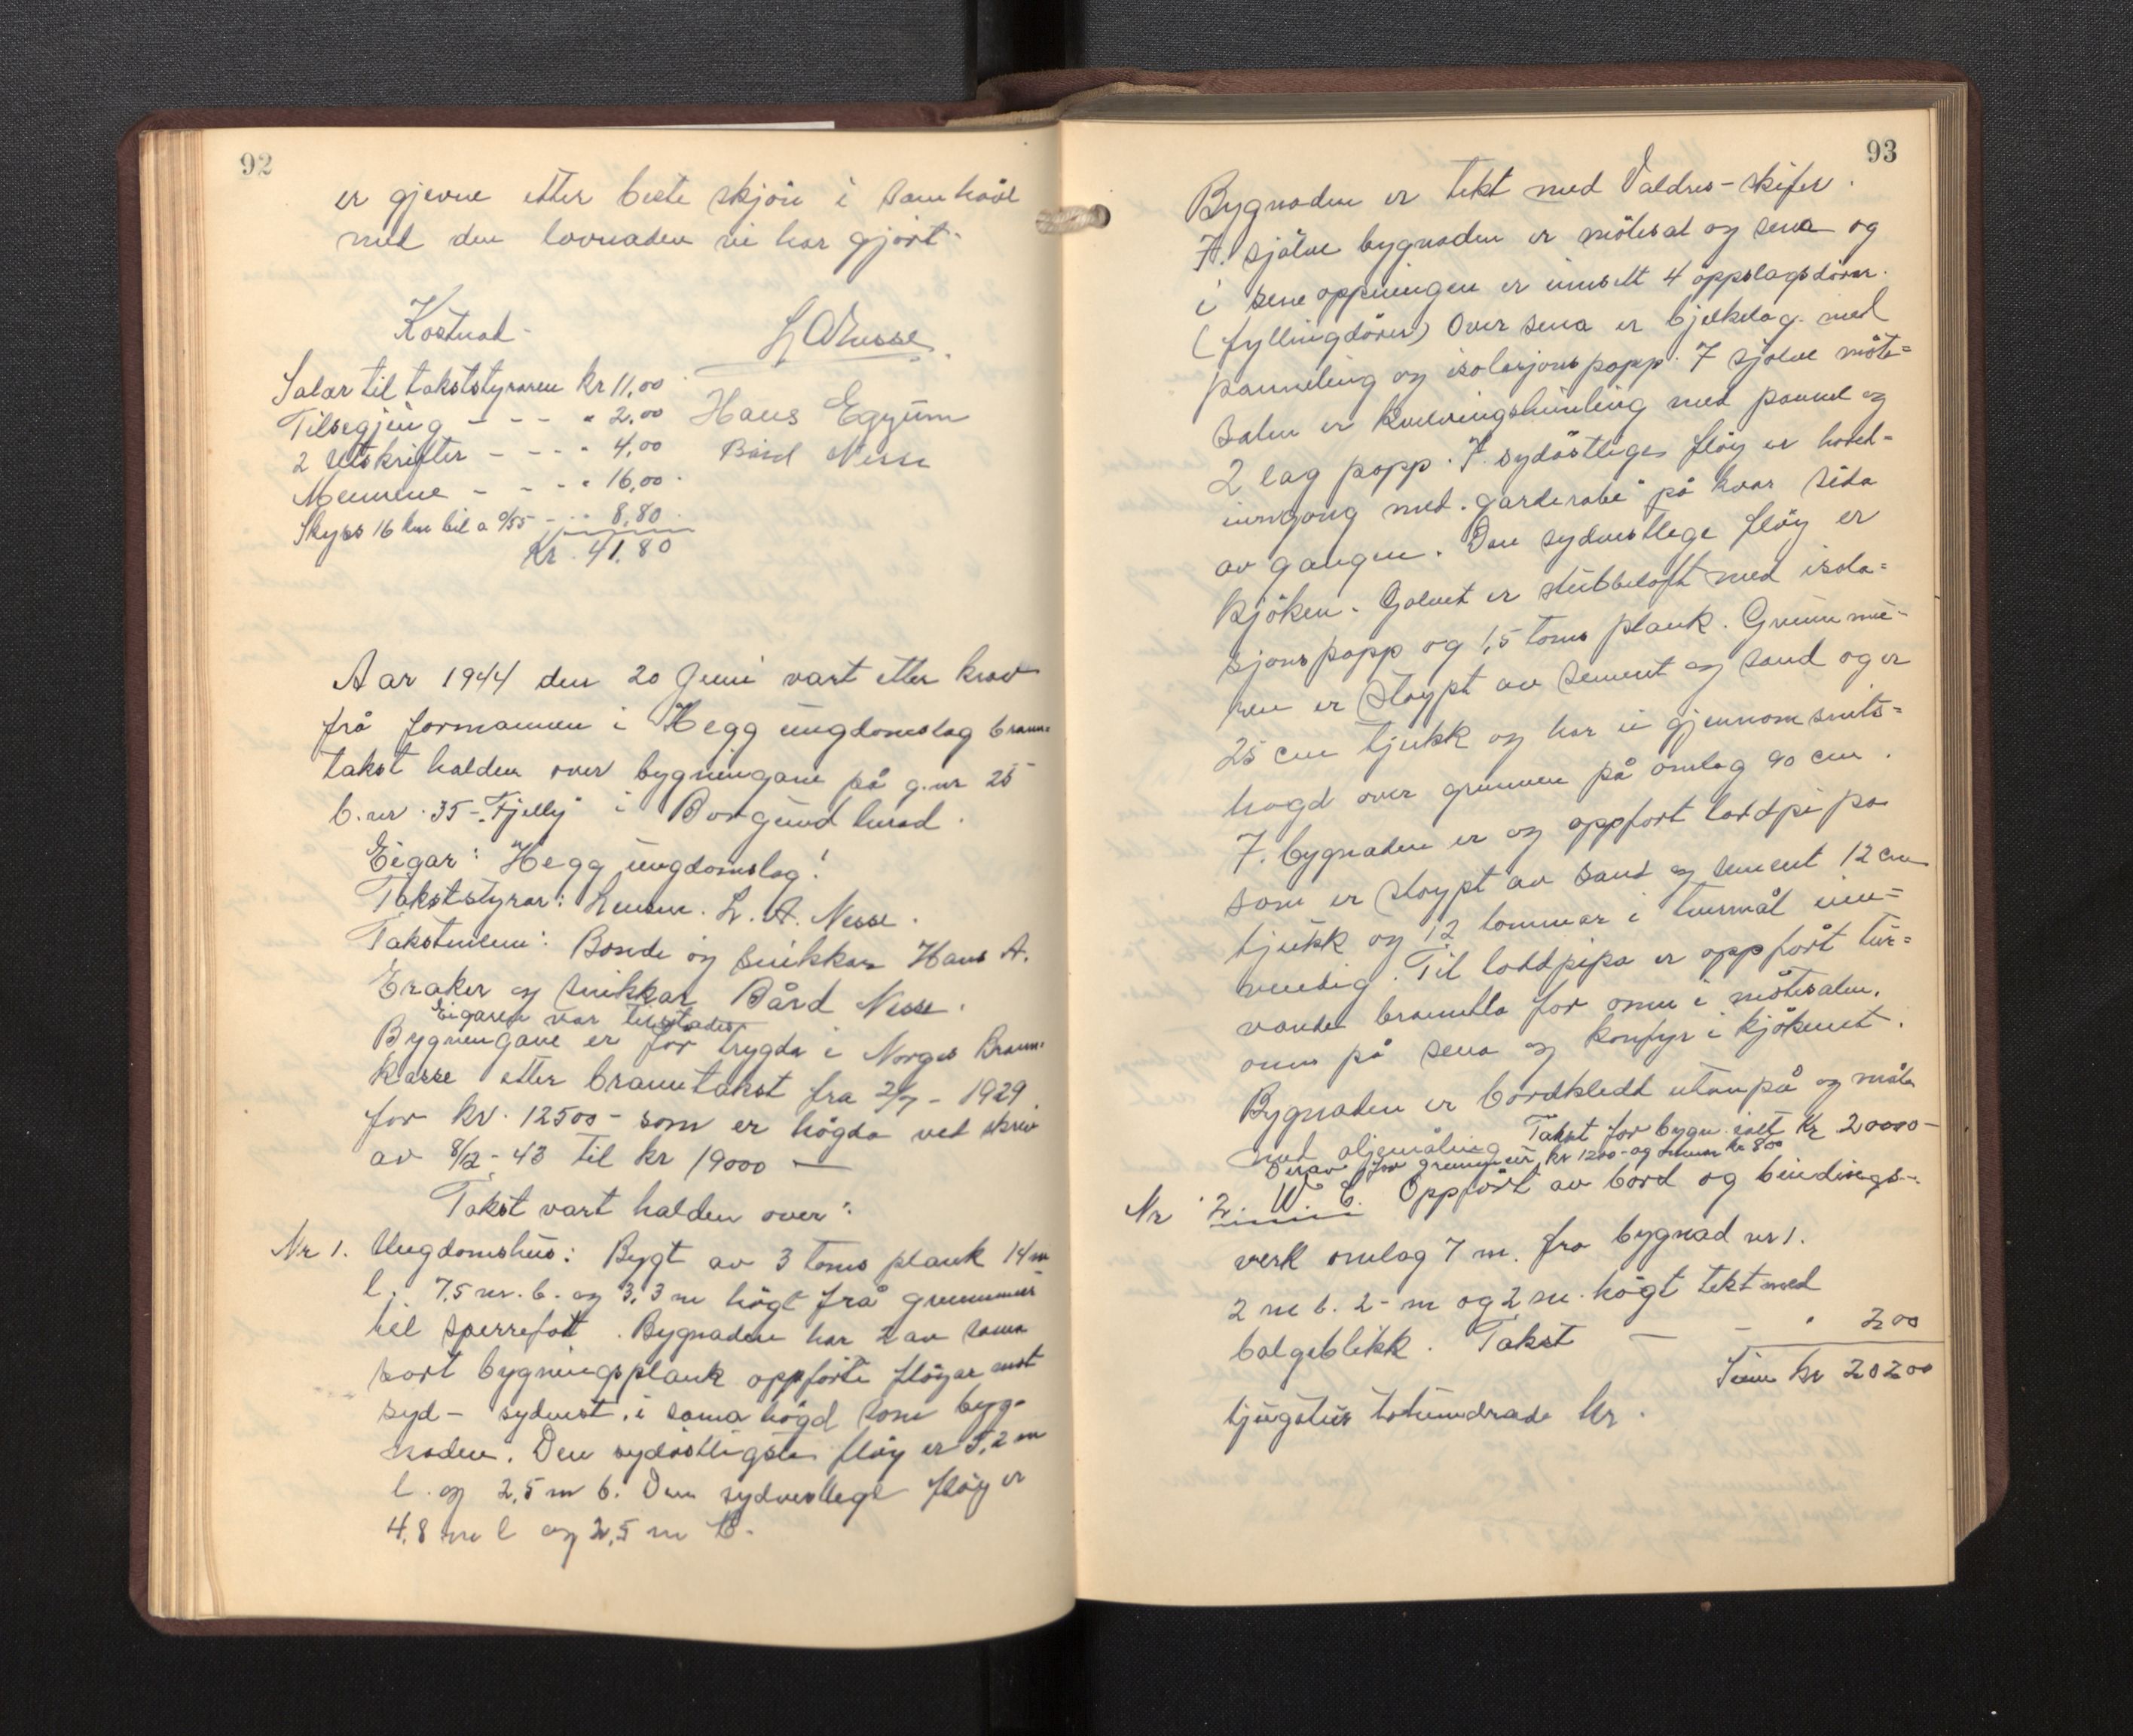 92
er gjevne etter beste skjön i samhöve
med den lovnaden vi har gjört.
Kostnad.
Salar til takststyraren kr 11,00
Tilsegjing - - - " 2,00
2 Utskrifter - - - " 4,00
Mennene - - - " 16,00
Skyss 16 km bil a 0/55 - - 8,80
Kr. 41.80
L A Nesse
Hans Eggum
Bård Nesse
Aar 1944 den 20 Juni vart etter krav
frå formannen i Hegg ungdomslag brann=
takst halden over bygningane på g.nr 25
b.nr. 35 - "Fjelly" i Borgund herad.
Eigar: Hegg ungdomslag!
Takststyrar: Lensm. L. A. Nesse.
Takstmenn: Bonde og snikkar Hans A.
Eraker og snikkar Bård Nesse.
Eigaren var tilstades
Bygningane er for trygda i Norges Brann=
kasse etter branntakst fra 2/7 - 1929
for kr. 12500 - som er högda ved skriv
av 8/12 - 43 til kr 19000 —
Takst vart halden over:
Nr 1. Ungdomshus: Bygt av 3 toms plank 14 m
l. 7,5 m. b. og 3,3 m högt frå grunnmur
til sperrefot. Bygnaden har 2 av sama
sort bygningsplank oppförte flöyar mot
syd - sydvest, i sama högd som byg-
naden. Den sydöstligste flöy er 5,2 m
l. og 2,5 m b. Den sydvestlege flöy er
4,8 m l og 2,5 m b.
93
Bygnaden er tekt med Valdres-skifer.
I. sjölve bygnaden er mötesal og sena og
i sene oppningen er innsett 4 oppslagsdörer.
(fyllingdörer) Over sena er bjelkelag med
panneling og isolasjonspapp. I sjölve möte=
salen er kvelvingshimling med pannel og
2 lag papp. I. sydöstlige flöy er hoved=
inngang med "garderobe" på kvar sida
av gangen. Den sydvestlege flöy er
kjöken. Golvet er stubbeloft med isola=
sjonspapp og 1,5 toms plank. Grunnmu-
ren er stöypt av sement og sand og er
25 cm tjukk og har ei gjennomsnits=
högd over grunnen på omlag 90 cm.
I. bygnaden er og oppfört loddpipa
som er stöypt av sand og sement 12 cm
tjukk og 12 tommar i tversmål inn=
vendig. Til loddpipa er oppfört tur=
vande brannetla for omn i mötesalen,
omn på sena og komfyr i kjökenet.
Bygnaden er bordkledd utanpå og måla
med oljemåling Takst for bygn. i alt Kr 20000 -
Derav for grunnmur kr 1200 - og kr 800
Nr 2. W. C. Oppfört av bord og bindings-
verk omlag 7 m. fra bygnad nr 1.
2 m l. 2 - m og 2 m. högt tekt med
bölgeblikk. Takst — - " 200
Sum kr 20200
tjugetus tohundrade kr.